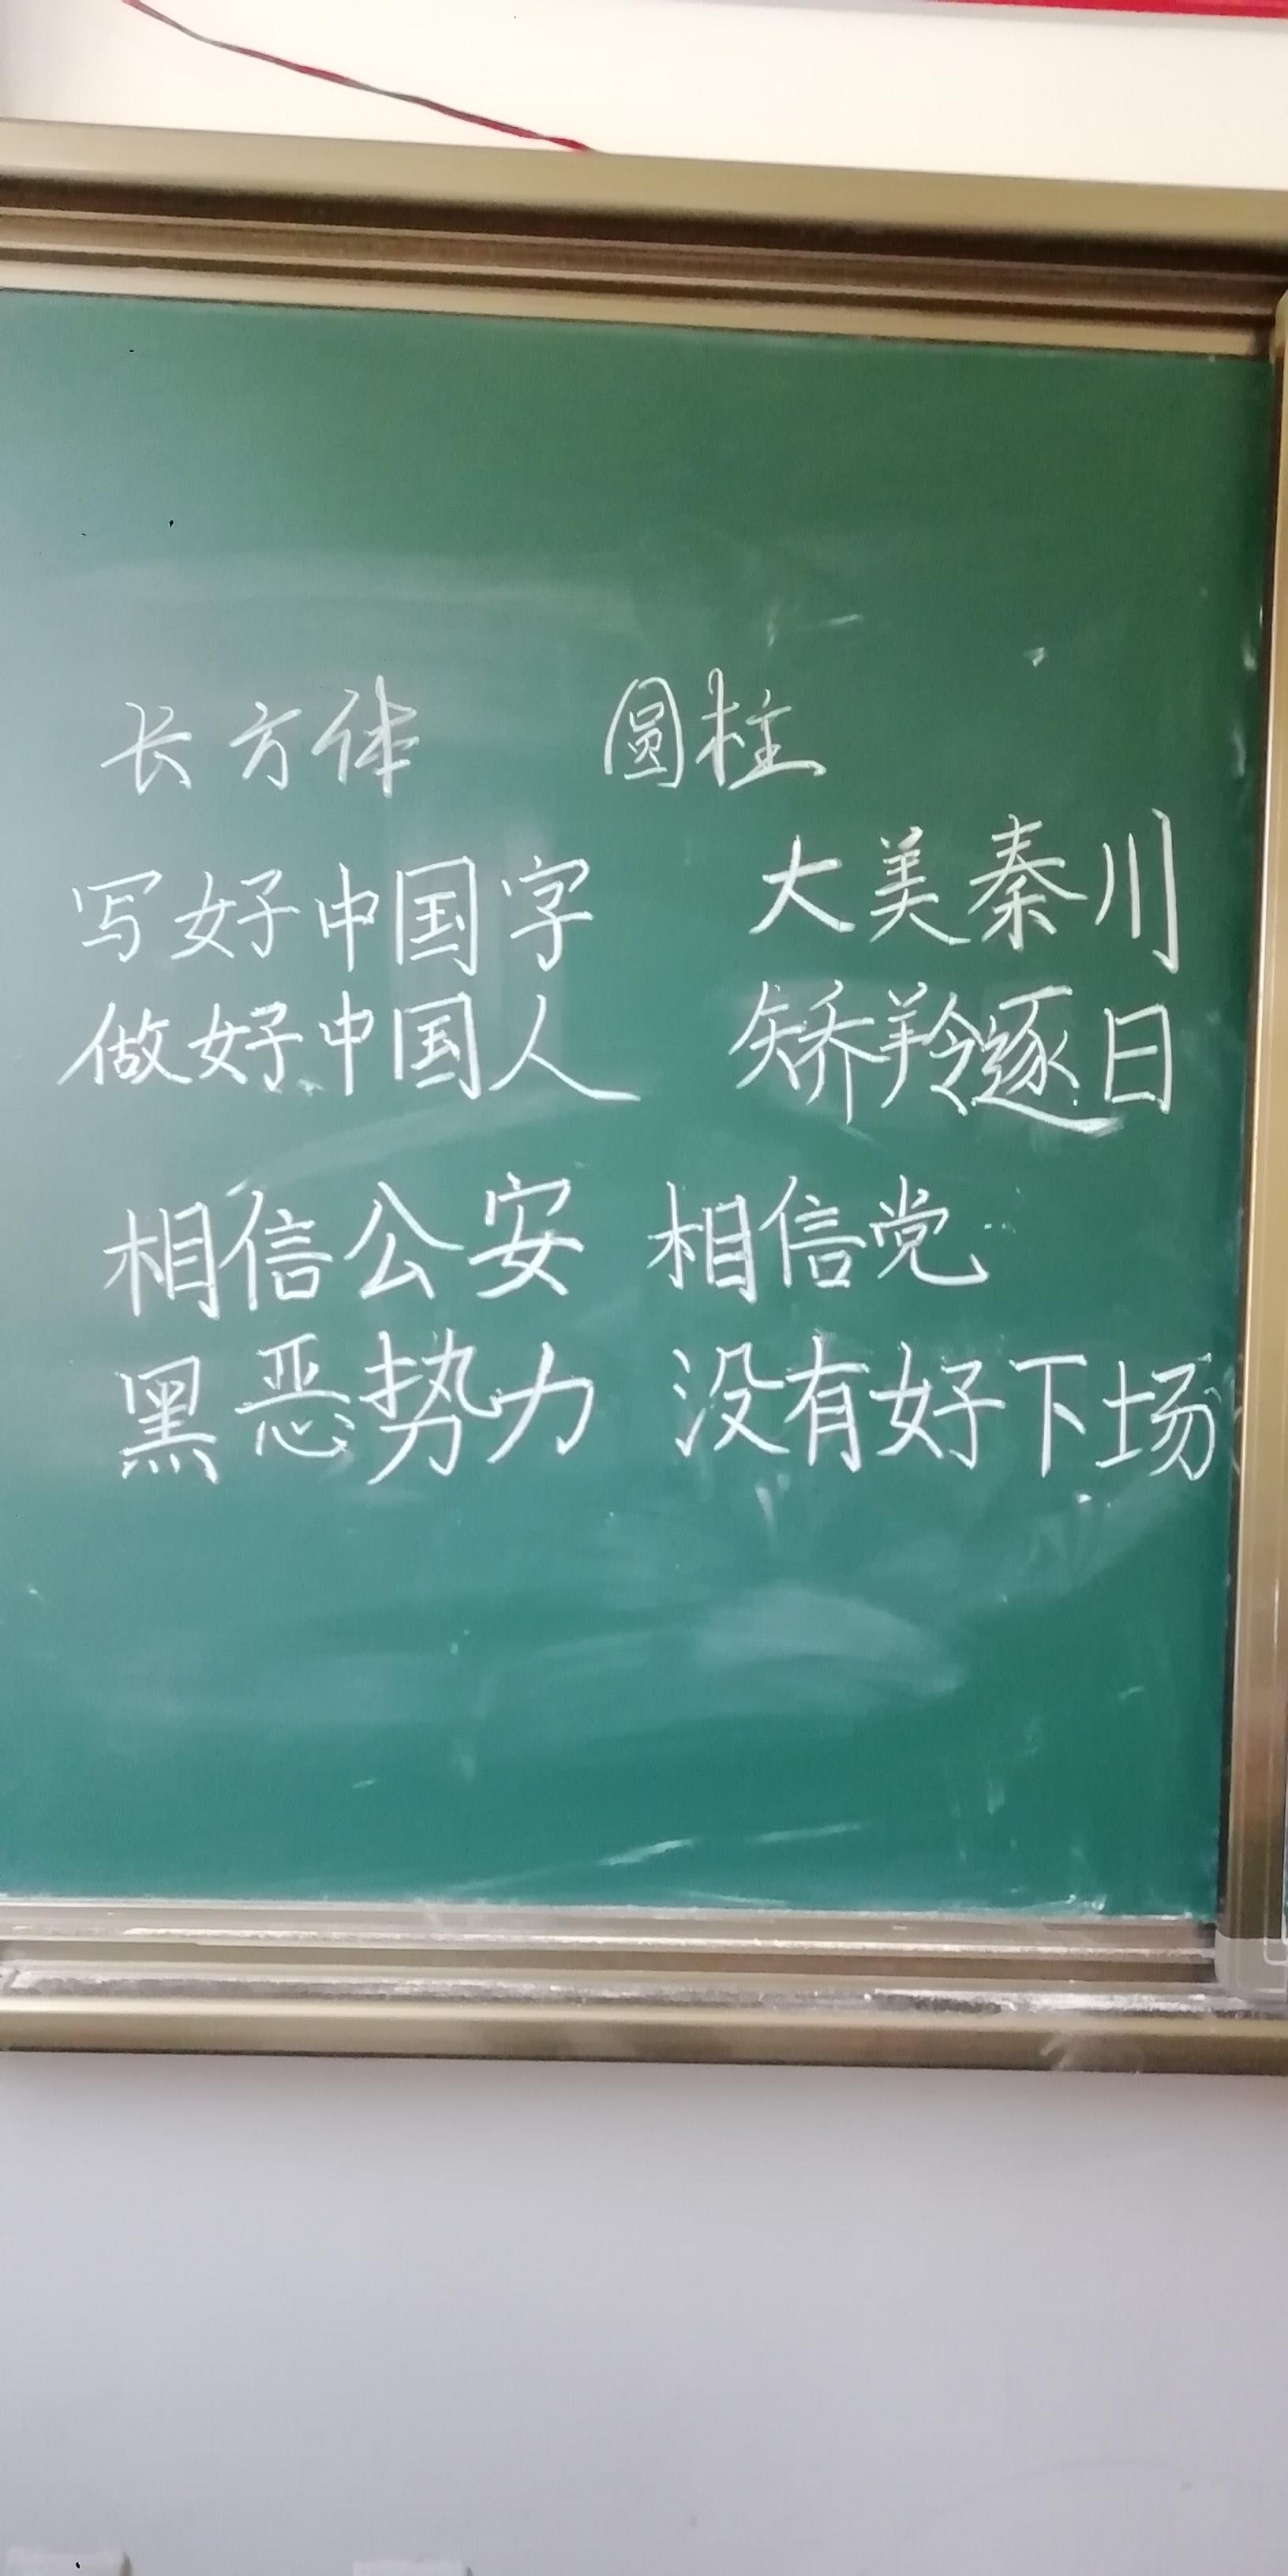 长方体 圆柱
写好中国字 大美秦川
做好中国人 矫羚逐日
相信公安 相信党
黑恶势力 没有好下场